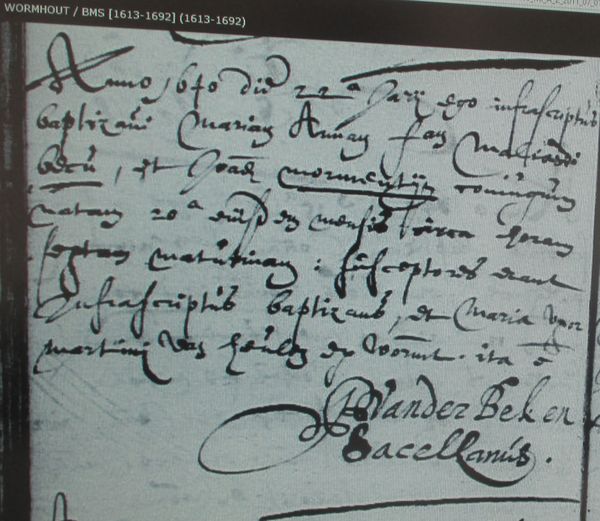 WORMHOUT / BMS [1613-1692] (1613-1692)
Anno 1640 die 22ª ego infrascriptus
baptizavi Mariam Annam
becu, et mormentijn coniugum
natam 20ª eiusdem mensis circa horam
septam matutinam : susceptores erant
Infrascriptus baptizans, et Maria uxor
martini van ex wormt. ita ē
Vander Beken
Sacellanus.